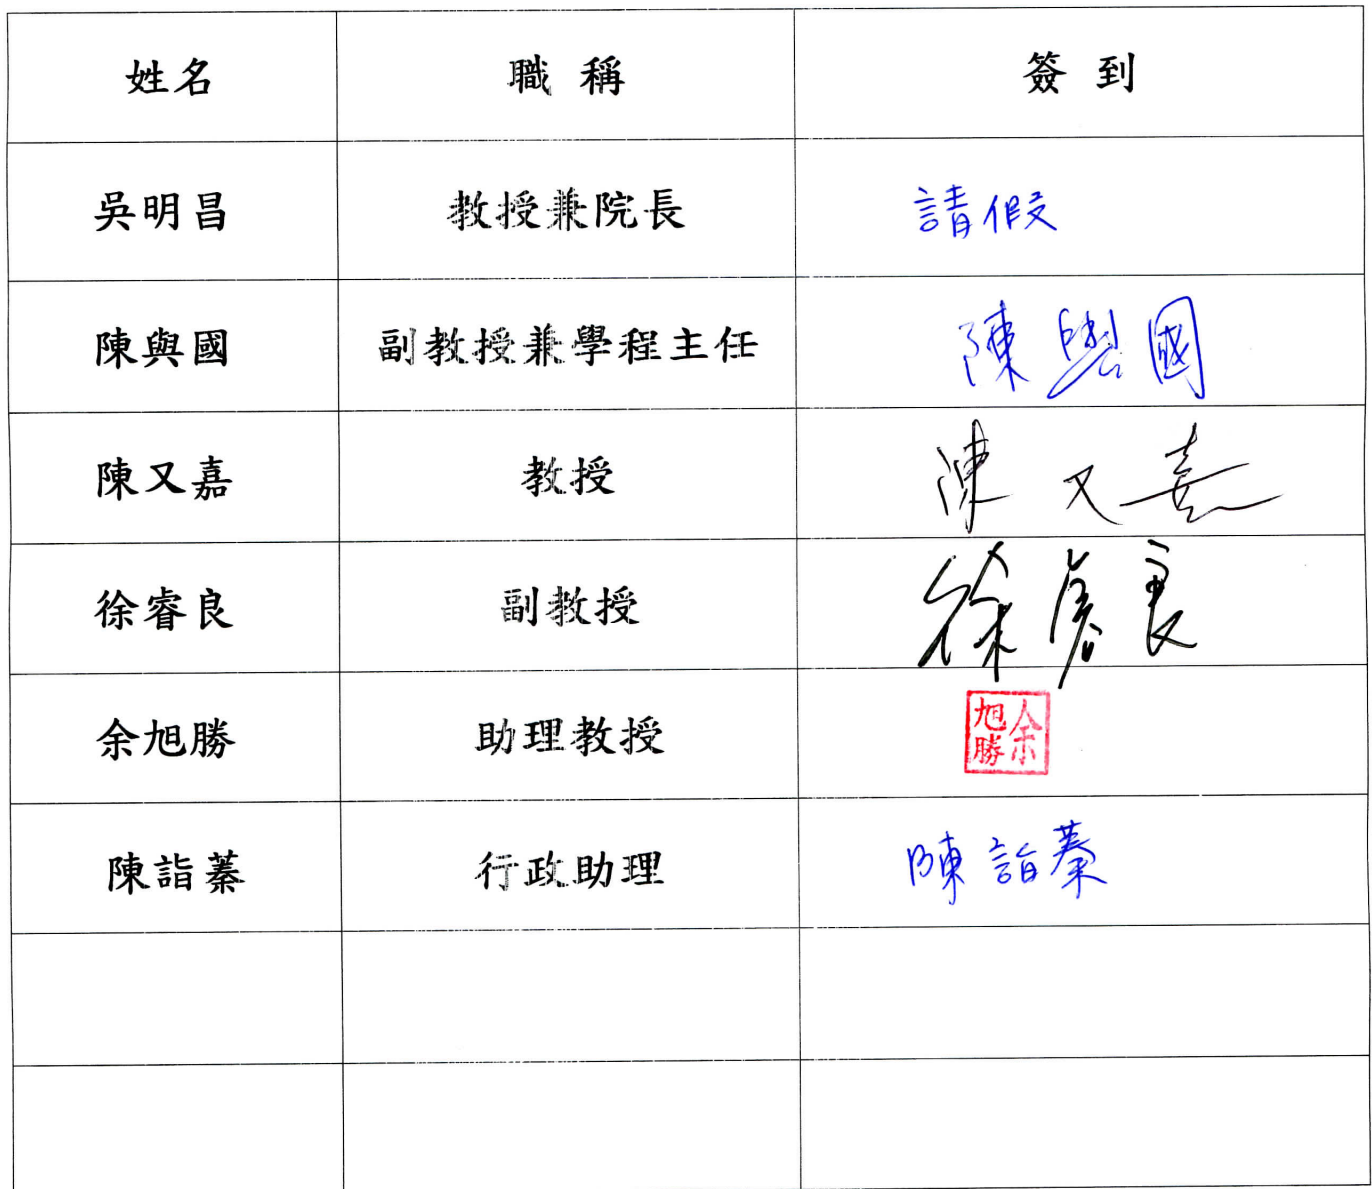 姓名 職稱 簽到
吳明昌 教授兼院長 請假
陳與國 副教授兼學程主任 陳與國
陳又嘉 教授 陳又嘉
徐睿良 副教授 徐睿良
余旭勝 助理教授 余旭勝
陳詣蓁 行政助理 陳詣蓁